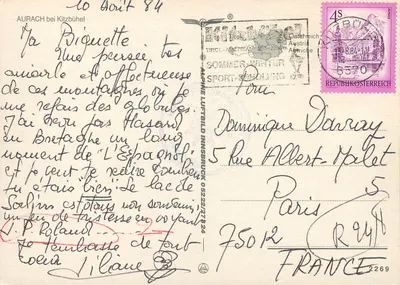 10 Août 84
AURACH bei Kitzbühel
Ma Biquette
Une pensée très
amicale et affectueuse
de ces montagnes où je me
refais des globules.
J'ai revu par Hasard
en Bretagne un long
moment de "L'Espagnol"
et je peux te redire combien
tu étais bien. Le lac de
Salins est dans son
un peu de tristesse en voyant
J. P. Roland
Je t'embrasse de tout
coeur
Liliane
Kitzbühel
TIROL
Österreich
Austria
Autriche
SOMMER-WINTER
SPORT-
4S
REPUBLIK ÖSTERREICH
6370
ALPINE LUFTBILD INNSBRUCK 05222/27824
Pour
Dominique Darray
5 Rue Albert Malet
5
Paris
75012
R 24H
FRANCE
2269